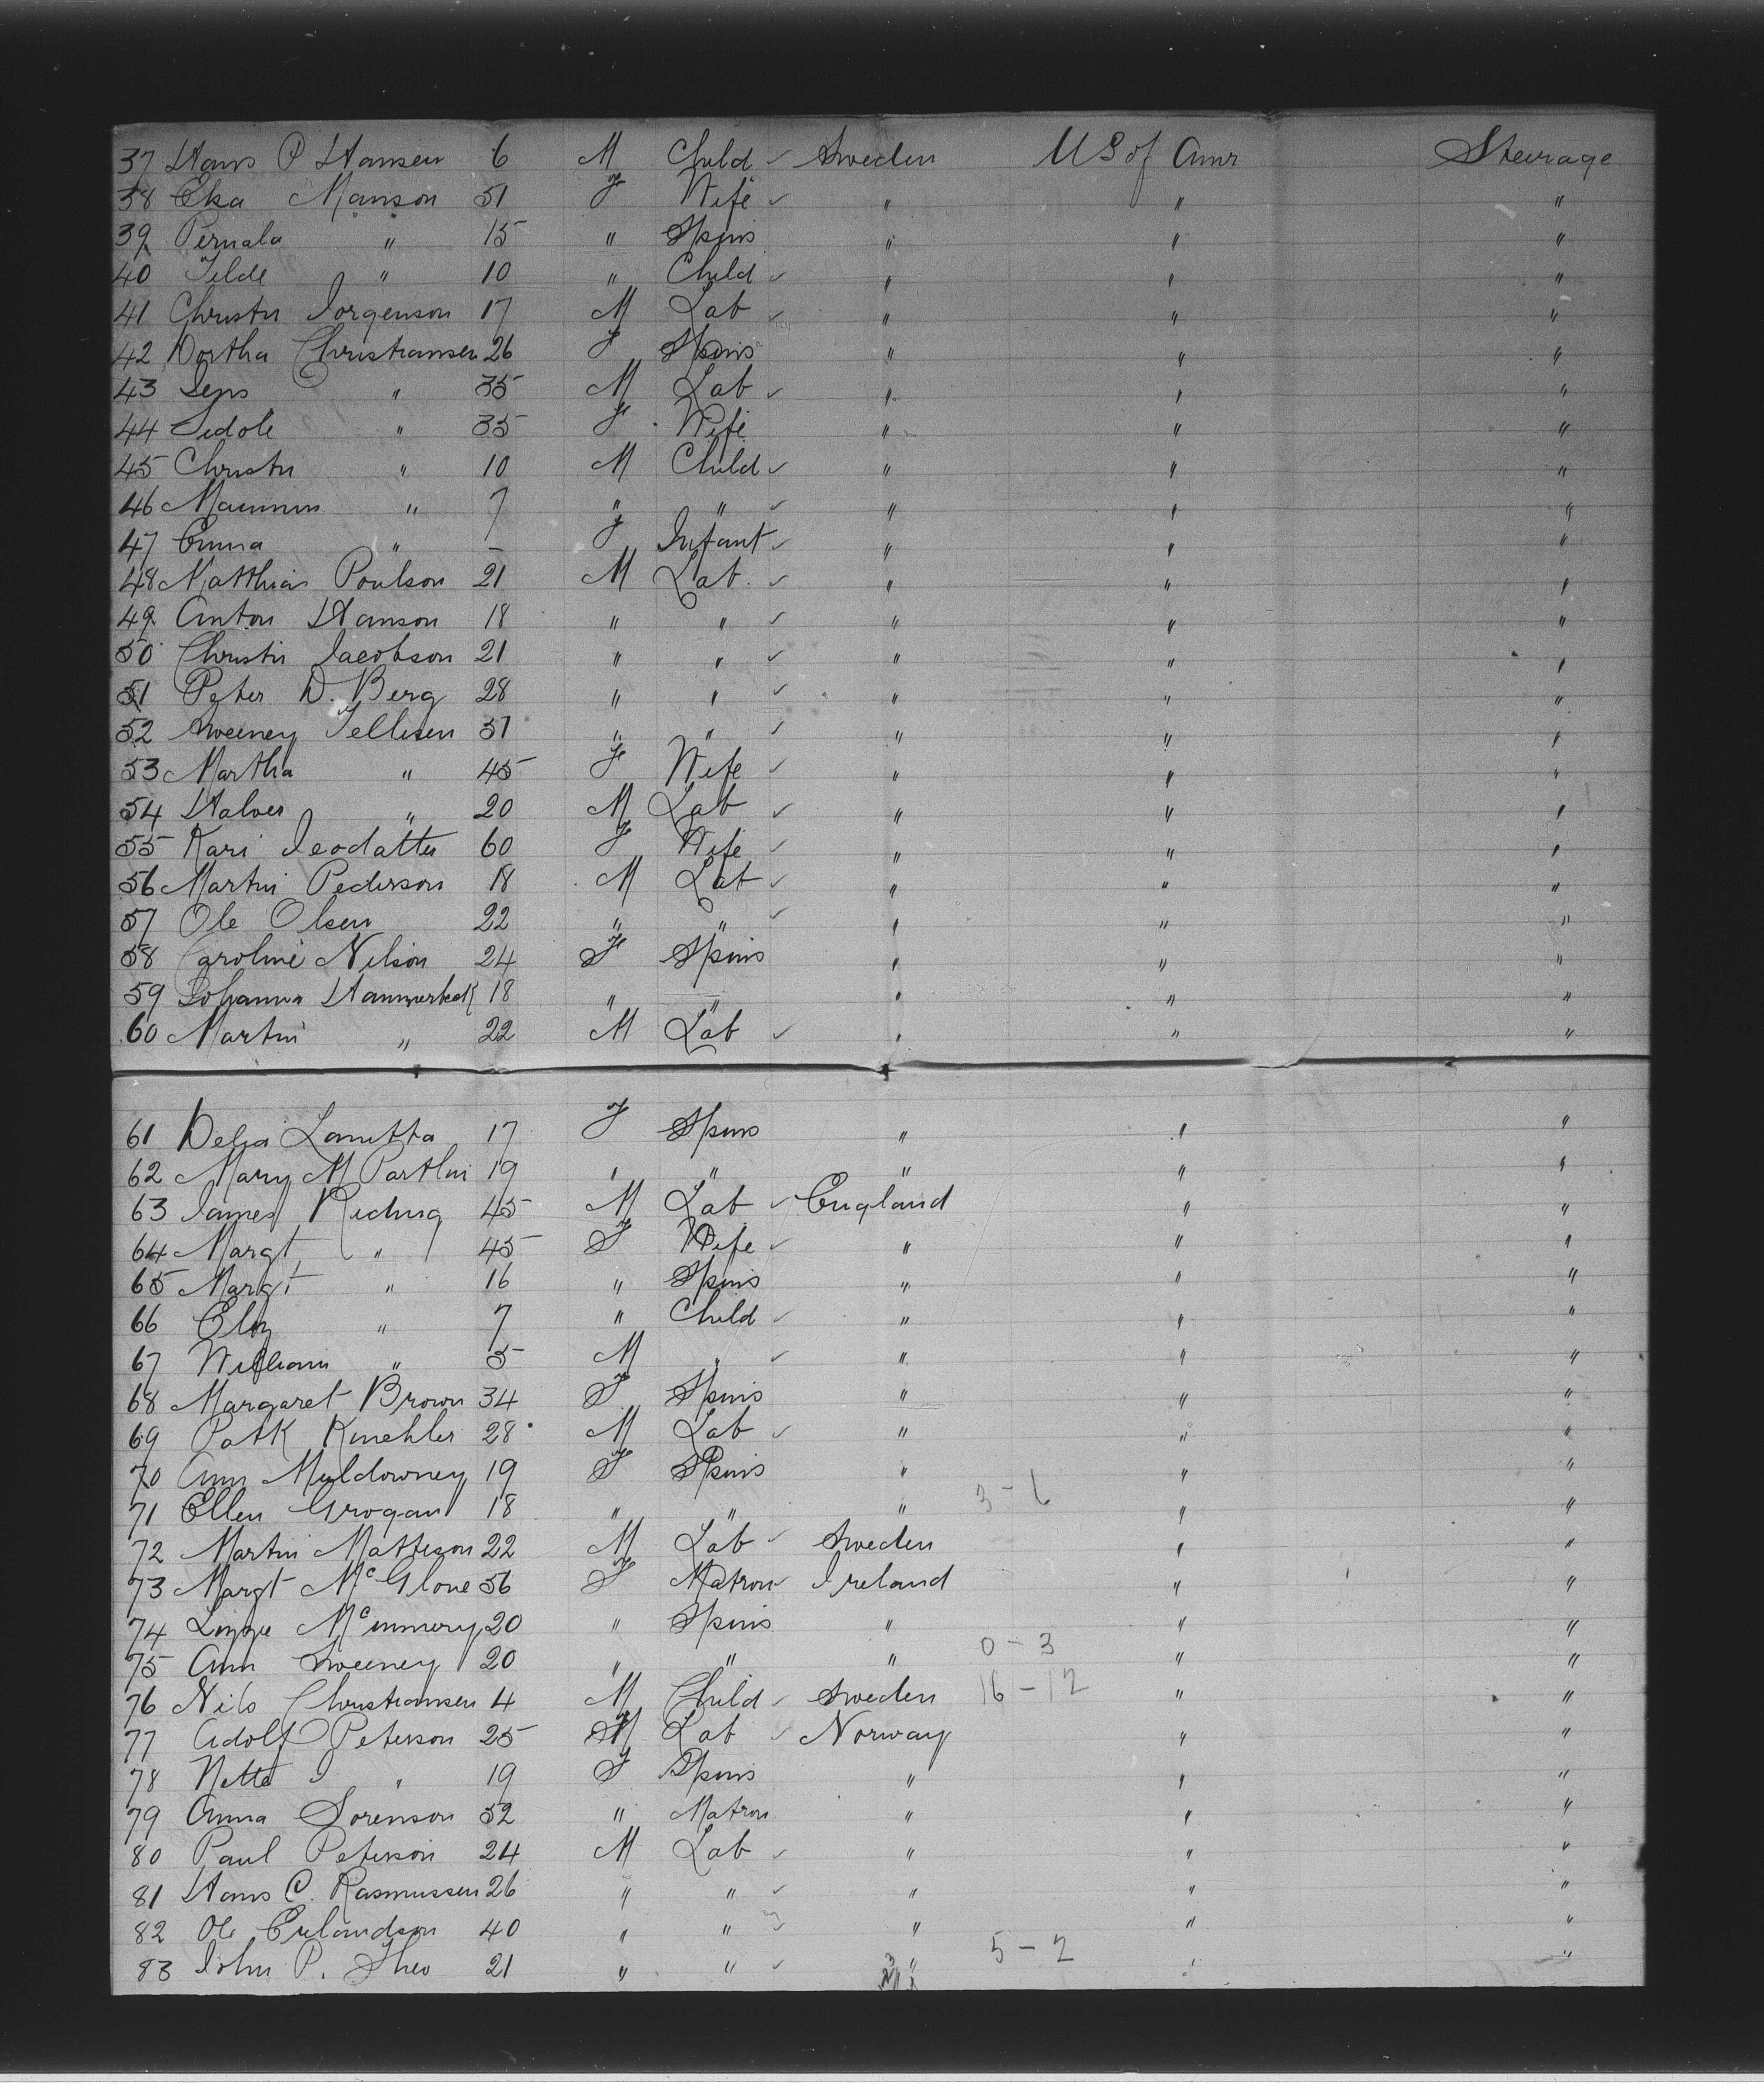 37 Hans P Hansen 6 M Child ✓ Sweden US of Amr Steerage
38 Elsa Manson 51 F Wife ✓ " " "
39 Pernala " 15 " Spins " " "
40 Tilde " 10 " Child ✓ " " "
41 Christn Jorgenson 17 M Lab ✓ " " "
42 Dortha Christiansen 26 F Spins " " "
43 Jens " 35 M Lab ✓ " " "
44 Sidole " 35 F Wife " " "
45 Christn " 10 M Child ✓ " " "
46 " 7 " " ✓ " " "
47 Emma " F Infant ✓ " " "
48 Matthias Poulson 21 M Lab. ✓ " " "
49 Anton Hanson 18 " " ✓ " " "
50 Christn Jacobson 21 " " ✓ " " "
51 Peter D. Berg 28 " " ✓ " " "
52 Sweeney Tellisen 51 " " ✓ " " "
53 Martha " 45 F Wife ✓ " " "
54 Halver " 20 M Lab ✓ " " "
55 Kari 60 F Wife ✓ " " "
56 Martin Pederson 18 M Lab ✓ " " "
57 Ole Olsen 22 " " ✓ " " "
58 Caroline Nilson 24 F Spins " " "
59 Johanna 18 " " " " "
60 Martin " 22 M Lab ✓ " " "
61 Delia 17 F Spins " " "
62 Mary M Partlin 19 " " " " "
63 James Riding 45 M Lab ✓ England " "
64 Margt " 45 F Wife ✓ " " "
65 Margt " 16 " Spins " " "
66 Eliz " 7 " Child ✓ " " "
67 William " 5 M " ✓ " " "
68 Margaret Brown 34 F Spins " " "
69 Patk 28 M Lab ✓ " " "
70 Ann Muldowney 19 F Spins " " "
71 Ellen Grogan 18 " " " 3-6 " "
72 Martin Matteson 22 M Lab ✓ Sweden " "
73 Margt McGlone 56 F Matron ✓ Ireland " "
74 Lizzie 20 " Spins " " "
75 Ann Sweeney 20 " " " 0-3 " "
76 Nils Christiansen 4 M Child ✓ Sweden 16-12 " "
77 Adolf Peterson 25 M Lab ✓ Norway " "
78 Netta " 19 F Spins " " "
79 Anna Sorenson 52 " Matron " " "
80 Paul Peterson 24 M Lab ✓ " " "
81 Hans C. Rasmussen 26 " " ✓ " " "
82 Ole Erlandson 40 " " ✓ " " "
83 John P. 21 " " ✓ " 5-2 " "